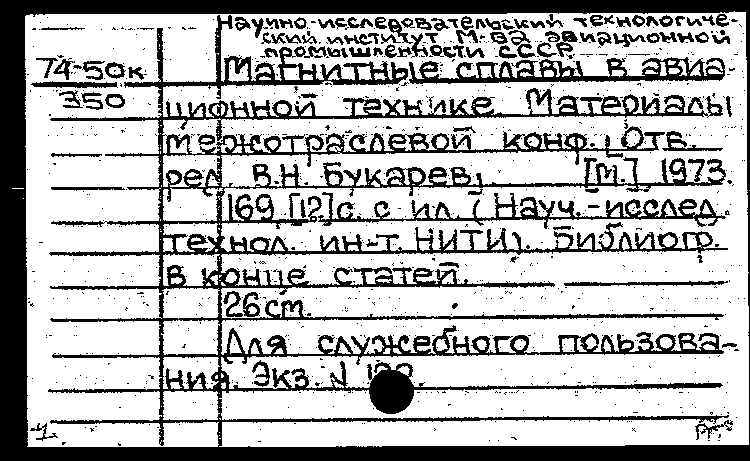 Научно-исследовательский технологиче-
ский институт М-ва авиационной
промышленности СССР
74-50к Магнитные сплавы в авиа-
350 ционной технике. Материалы
межотраслевой конф. [Отв.
ред. В.Н. Букарев]. [М.] 1973.
169 [12]с. с ил. (Науч.-исслед.
технол. ин-т. НИТИ). Библиогр.
в конце статей.
26 см.
Для служебного пользова-
ния. Экз. N